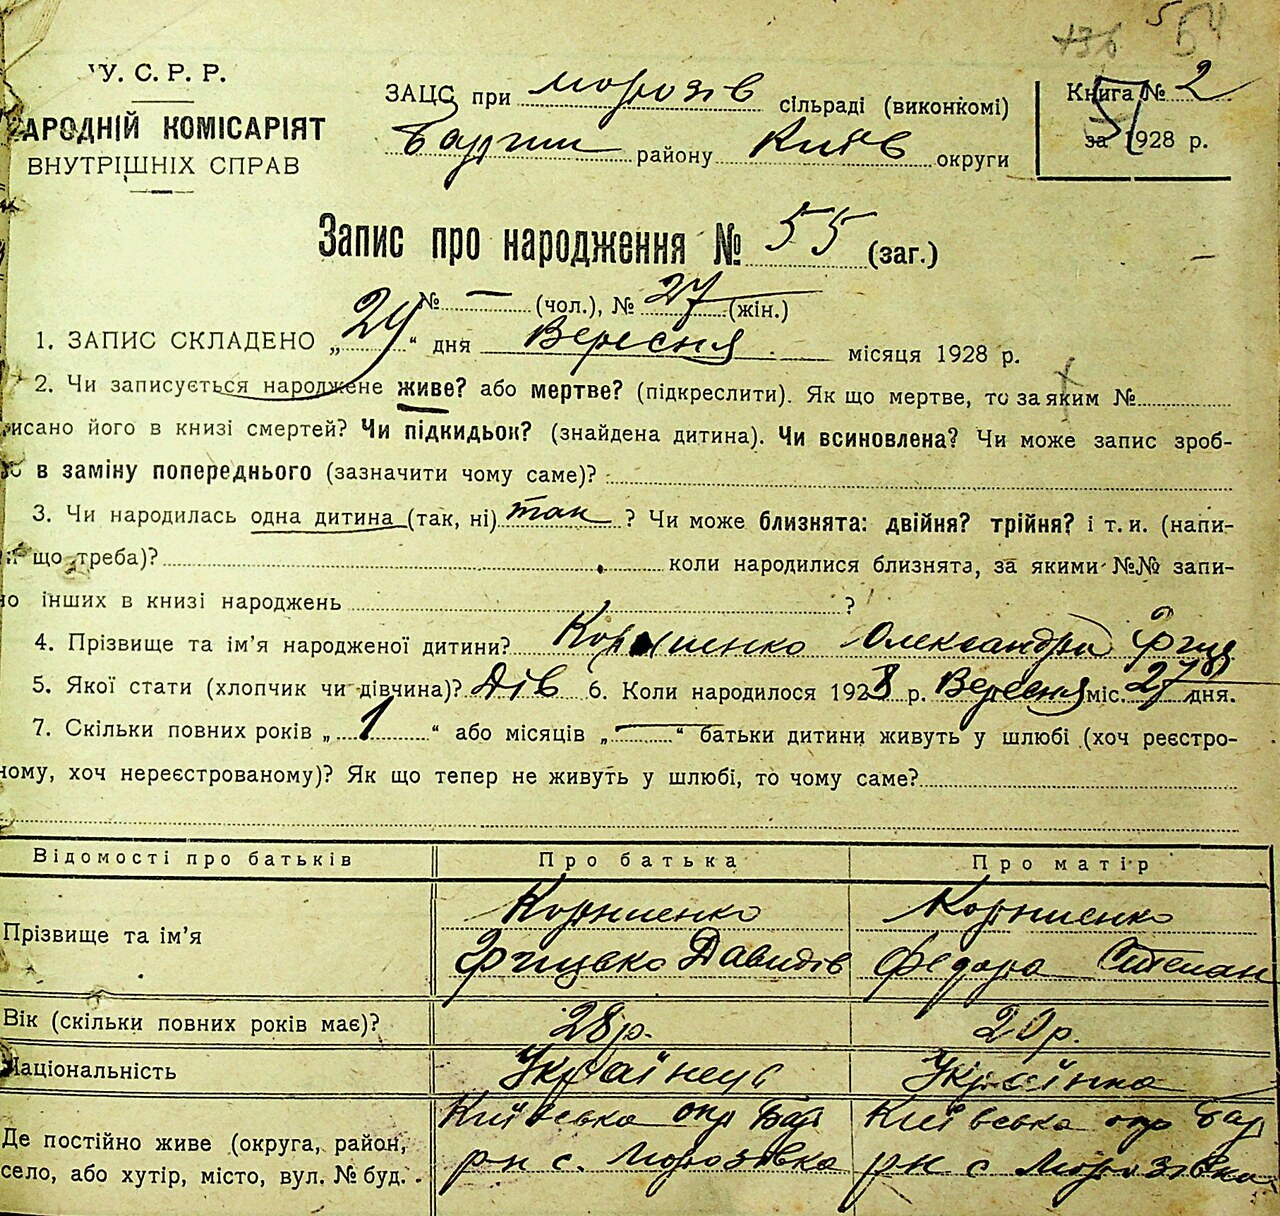 У. С. Р. Р.
АРОДНІЙ КОМІСАРІЯТ
ВНУТРІШНІХ СПРАВ
ЗАЦС при Морозів сільраді (виконкомі)
району Київ округи
54
Книга № 2
за 1928 р.
Запис про народження № 55 (заг.)
№ — (чол.), № 27 (жін.)
1. ЗАПИС СКЛАДЕНО „29“ дня Вересня місяця 1928 р.
2. Чи записується народжене живе? або мертве? (підкреслити). Як що мертве, то за яким №
исано його в книзі смертей? Чи підкидьок? (знайдена дитина). Чи всиновлена? Чи може запис зроб-
в заміну попереднього (зазначити чому саме)?
3. Чи народилась одна дитина (так, ні) так ? Чи може близнята: двійня? трійня? і т. и. (напи-
що треба)? коли народилися близнята, за якими №№ запи-
о інших в книзі народжень ?
4. Прізвище та ім’я народженої дитини? Корниенко Олександра
5. Якої стати (хлопчик чи дівчина)? Дів 6. Коли народилося 1928 р. Вересня міс. 27 дня.
7. Скільки повних років „ 1 “ або місяців „ — “ батьки дитини живуть у шлюбі (хоч реєстро-
ному, хоч нереєстрованому)? Як що тепер не живуть у шлюбі, то чому саме?
Відомості про батьків Про батька Про матір
Прізвище та ім’я
Корниенко Корниенко
Грицько Давидів Федора Степан
Вік (скільки повних років має)? 28 р. 20 р.
Національність Українець Українка
Де постійно живе (округа, район, село, або хутір, місто, вул. № буд.
Київська окр Бар Київська окр Бар
рн с. Морозівка рн с Морозівка